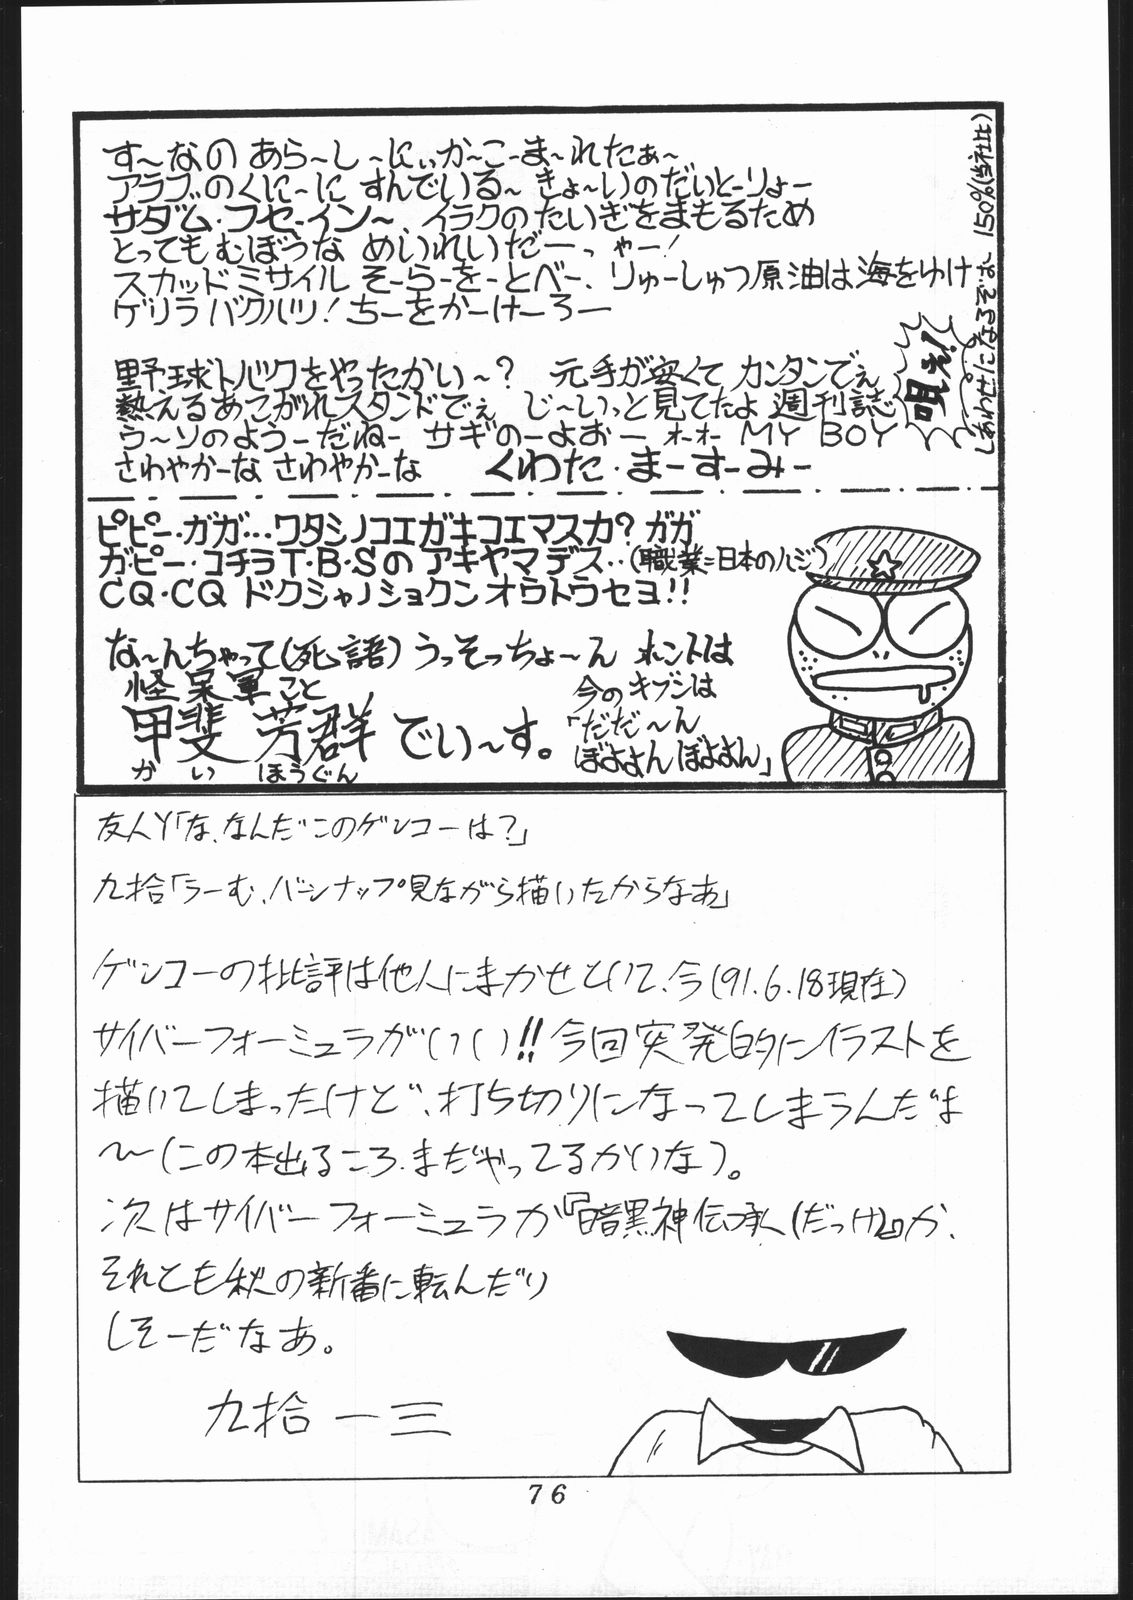 す〜なの あら〜し〜にぃか〜こ-ま〜れたぁ〜
アラブのくに〜に すんでいる〜 きょ〜いのだいと-りょ-
サダム・フセ-イン〜 イラクのたいぎをまもるため
とってもむぼうな めいれいだーっゃー!
スカッドミサイル そーらーをーとべー、りゅーしゅつ原油は海をゆけ
ゲリラバクハツ!ちーをかーけーろー
しあわせになるぞぉ〜 150%(当社比)
唄え!
野球トバクをやったかい〜? 元手が安くて カンタンでぇ
熱えるあこがれスタンドでぇ じ〜いっと見てたよ 週刊誌
う〜ソのようーだねー サギのーよおー ォーォー MY BOY
さわやかーな さわやかーな くわた・まーすーみー
ピピー・ガガ…ワタシノコエガキコエマスカ?ガガ
ガ・ピー・コチラT・B・Sのアキヤマデス‥(職業=日本のハジ)
CQ・CQ ドクシャノショクンオウトウセヨ!!
な〜んちゃって(死語)うっそっちょ〜ん ホントは
怪呆軍こと
甲斐 芳群でい〜す。
かい ほうぐん
今のキブンは
「だだ〜ん
ぼよよんぼよよん」
友人Y「な、なんだこのゲンコーは?」
九拾「うーむ、バーンナップ見ながら描いたからなあ」
ゲンコーの批評は他人にまかせといて、今(91.6.18現在)
サイバーフォーミュラがいい!!今回突発的にイラストを
描いてしまったけど、打ち切りになってしまうんだよ
〜(この本出るころ、まだやってるかいな)。
次はサイバーフォーミュラか『暗黒神伝承(だっけ)』か、
それとも秋の新番に転んだり
しそーだなあ。
九拾 一三
76